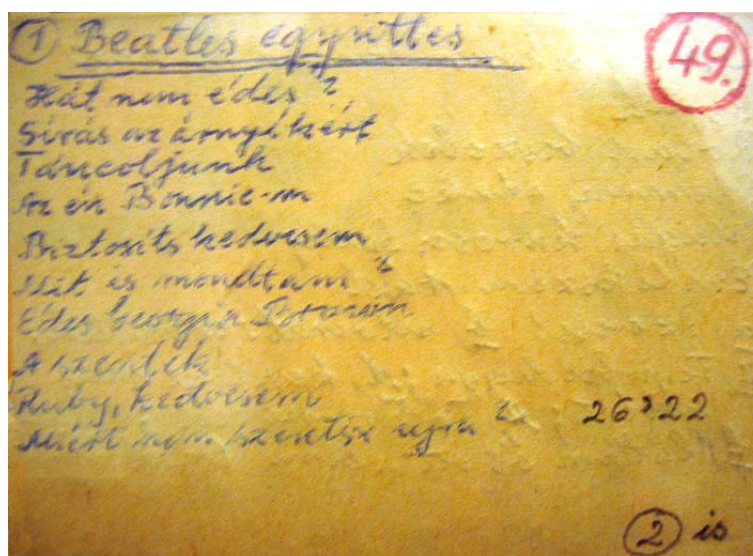 ① Beatles együttes
49.
Hát nem édes?
Sírás az árnyékért
Táncoljunk
Az én Bonnie-m
Biztosíts kedvesem
Mit is mondtam?
Édes Georgia Brown
A szentek
Ruby, kedvesem
Miért nem szeretsz ujra?
26'22
② is